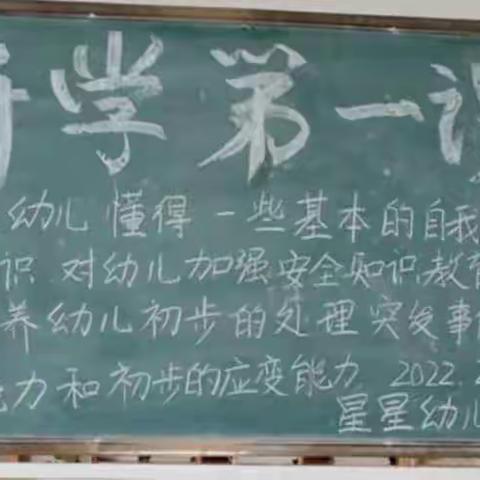 学第一
幼儿懂得一些基本的自我
识 对幼儿加强安全知识教育
养幼儿初步的处理突发事
力和初步的应变能力 2022.2
星星幼儿